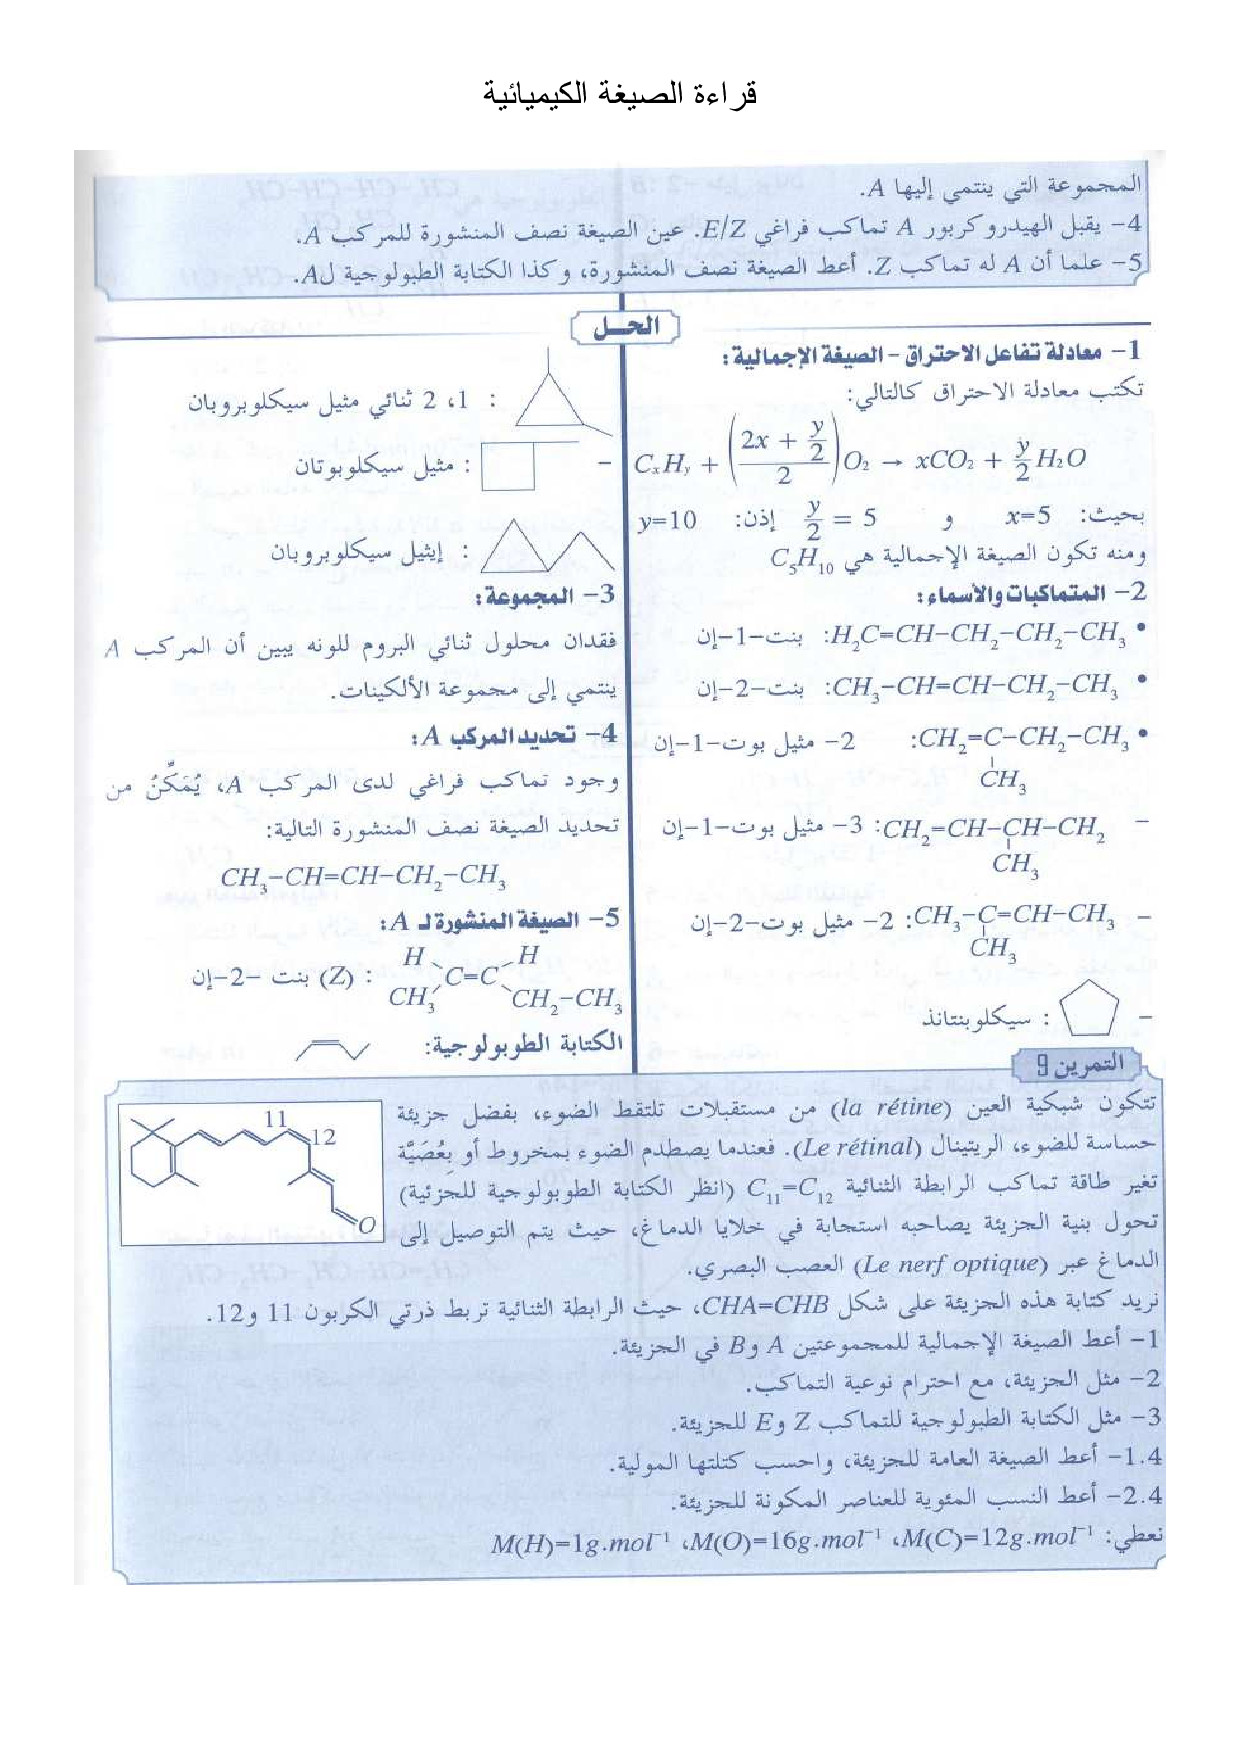 قراءة الصيغة الكيميائية
المجموعة التي ينتمي إليها A.
4- يقبل الهيدروكربور A تماكب فراغي E/Z. عين الصيغة نصف المنشورة للمركب A.
5- علما أن A له تماكب Z. أعط الصيغة نصف المنشورة، وكذا الكتابة الطبولوجية لـA.
الحـــل
1- معادلة تفاعل الاحتراق - الصيغة الإجمالية:
تكتب معادلة الاحتراق كالتالي:
CₓHᵧ + ((2x + y/2)/2) O₂ → xCO₂ + y/2 H₂O
بحيث: x=5 و y/2 = 5 إذن: y=10
ومنه تكون الصيغة الإجمالية هي C₅H₁₀
2- المتماكبات والأسماء:
• H₂C=CH-CH₂-CH₂-CH₃: بنت-1-إن
• CH₃-CH=CH-CH₂-CH₃: بنت-2-إن
• CH₂=C-CH₂-CH₃: 2- مثيل بوت-1-إن
CH₃
- CH₂=CH-CH-CH₂: 3- مثيل بوت-1-إن
CH₃
- CH₃-C=CH-CH₃: 2- مثيل بوت-2-إن
CH₃
- : سيكلوبنتانذ
: 1، 2 ثنائي مثيل سيكلوبروبان
- : مثيل سيكلوبوتان
: إيثيل سيكلوبروبان
3- المجموعة:
فقدان محلول ثنائي البروم للونه يبين أن المركب A
ينتمي إلى مجموعة الألكينات.
4- تحديد المركب A:
وجود تماكب فراغي لدى المركب A، يُمَكِّنُ من
تحديد الصيغة نصف المنشورة التالية:
CH₃-CH=CH-CH₂-CH₃
5- الصيغة المنشورة لـ A:
H H
C=C : (Z) بنت -2-إن
CH₃ CH₂-CH₃
الكتابة الطوبولوجية:
التمرين 9
تتكون شبكية العين (la rétine) من مستقبلات تلتقط الضوء، بفضل جزيئة
حساسة للضوء، الريتينال (Le rétinal). فعندما يصطدم الضوء بمخروط أو بِعُصَيَّة
تغير طاقة تماكب الرابطة الثنائية C₁₁=C₁₂ (انظر الكتابة الطوبولوجية للجزئية)
تحول بنية الجزيئة يصاحبه استجابة في خلايا الدماغ، حيث يتم التوصيل إلى
الدماغ عبر (Le nerf optique) العصب البصري.
11
12
O
نريد كتابة هذه الجزيئة على شكل CHA=CHB، حيث الرابطة الثنائية تربط ذرتي الكربون 11 و12.
1- أعط الصيغة الإجمالية للمجموعتين A وB في الجزيئة.
2- مثل الجزيئة، مع احترام نوعية التماكب.
3- مثل الكتابة الطبولوجية للتماكب Z وE للجزيئة.
1.4- أعط الصيغة العامة للجزيئة، واحسب كتلتها المولية.
2.4- أعط النسب المئوية للعناصر المكونة للجزيئة.
نعطي: M(H)=1g.mol⁻¹ ،M(O)=16g.mol⁻¹ ،M(C)=12g.mol⁻¹